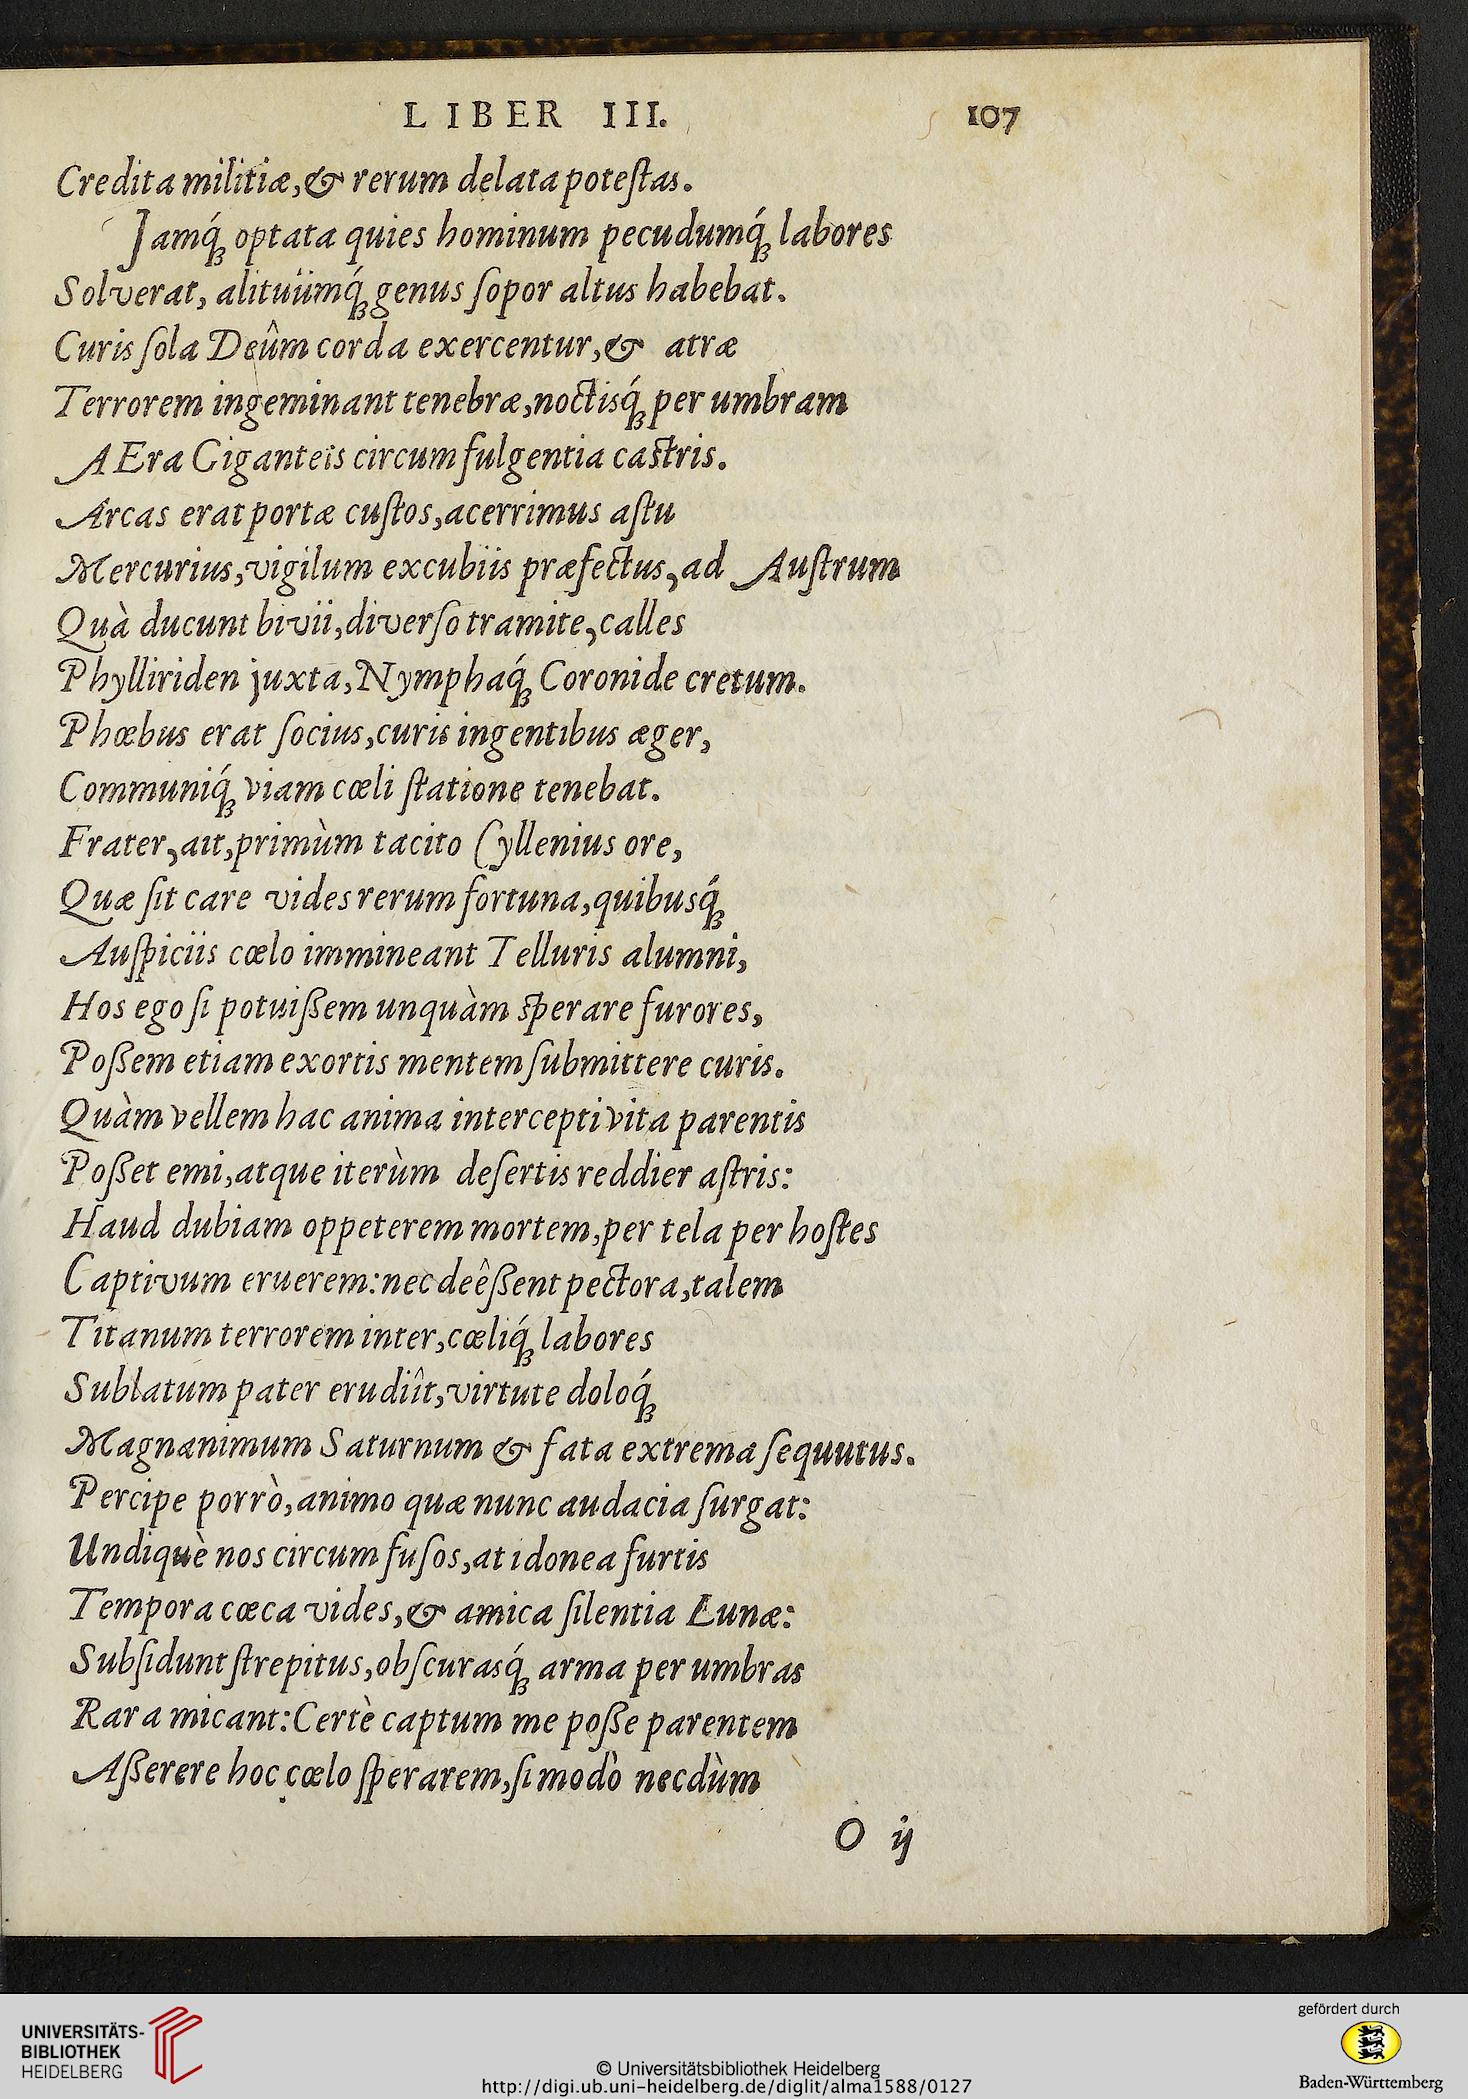 LIBER III. 107
Credita militiæ,& rerum delata poteſtas.
Jamq́ꝫ optata quies hominum pecudumq́ꝫ labores
Solverat, alituúmq́ꝫ genus ſopor altus habebat.
Curis ſola Deûm corda exercentur,& atræ
Terrorem ingeminant tenebræ,noctisq́ꝫ per umbram
AEra Giganteis circum fulgentia castris.
Arcas erat portæ cuſtos,acerrimus aſtu
Mercurius,vigilum excubiis præfectus,ad Auſtrum
Quà ducunt bivii,diverſo tramite,calles
Phylliriden juxta,Nymphaq́ꝫ Coronide cretum.
Phœbus erat ſocius,curis ingentibus æger,
Communiq́ꝫ viam cœli ſtatione tenebat.
Frater,ait,primùm tacito Cyllenius ore,
Quæ ſit care vides rerum fortuna,quibusq́ꝫ
Auſpiciis cœlo immineant Telluris alumni,
Hos ego ſi potuißem unquàm sperare furores,
Poßem etiam exortis mentem ſubmittere curis.
Quàm vellem hac anima intercepti vita parentis
Poßet emi,atque iterùm deſertis reddier aſtris:
Haud dubiam oppeterem mortem,per tela per hoſtes
Captivum eruerem:nec deêßent pectora,talem
Titanum terrorem inter,cœliq́ꝫ labores
Sublatum pater erudiît,virtute doloq́ꝫ
Magnanimum Saturnum & fata extrema ſequutus.
Percipe porrò,animo quæ nunc audacia ſurgat:
Undiquè nos circum fuſos,at idonea furtis
Tempora cœca vides,& amica ſilentia Lunæ:
Subſidunt ſtrepitus,obſcurasq́ꝫ arma per umbras
Rara micant:Certè captum me poße parentem
Aßerere hoc cœlo ſperarem,ſi modò necdùm
O ij
UNIVERSITÄTS-
BIBLIOTHEK
HEIDELBERG
© Universitätsbibliothek Heidelberg
http://digi.ub.uni-heidelberg.de/diglit/alma1588/0127
gefördert durch
Baden-Württemberg